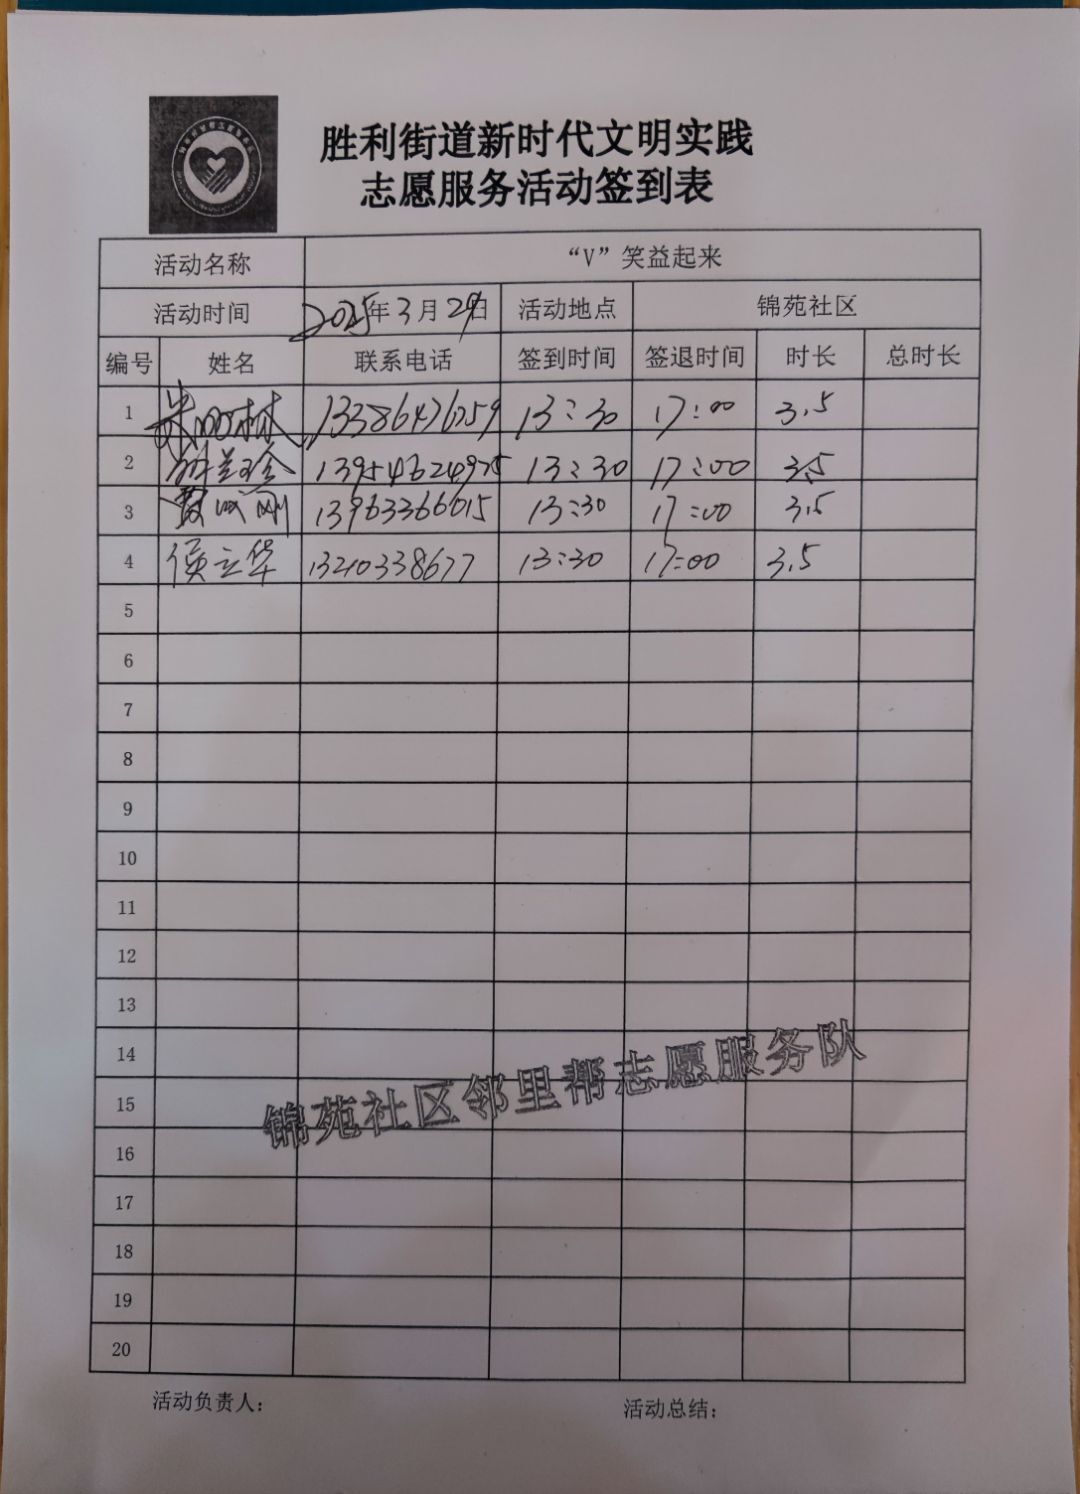 胜利街道新时代文明实践
志愿服务活动签到表
活动名称 “V”笑益起来
活动时间 2025年3月29日 活动地点 锦苑社区
编号 姓名 联系电话 签到时间 签退时间 时长 总时长
1 13386476759 13:30 17:00 3.5
2 13954624975 13:30 17:00 3.5
3 13963366615 13:30 17:00 3.5
4 侯立华 13210338677 13:30 17:00 3.5
5
6
7
8
9
10
11
12
13
14
15
16
17
18
19
20
锦苑社区邻里帮志愿服务队
活动负责人: 活动总结: